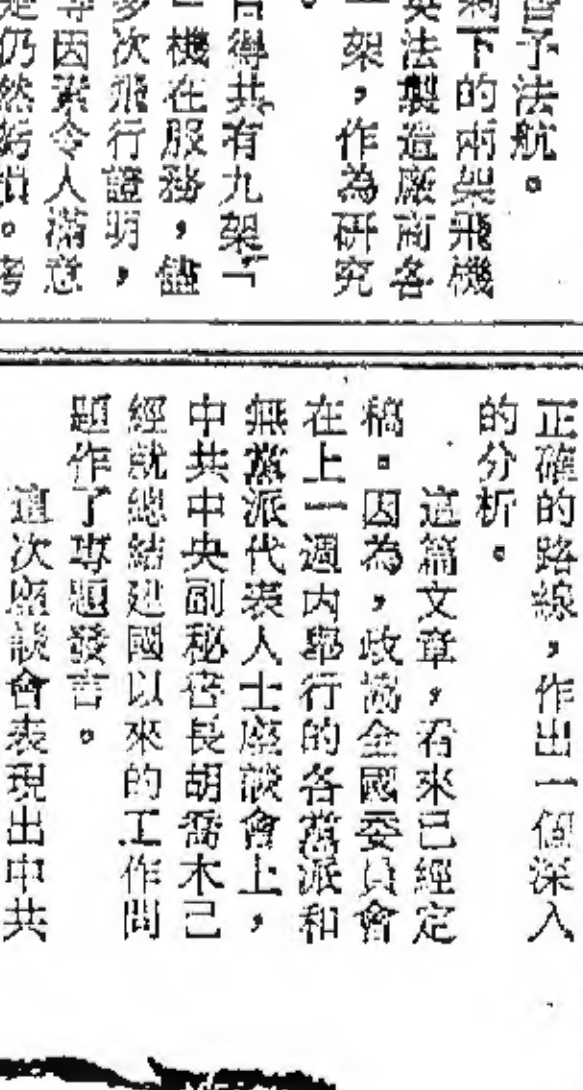 售予法航。
剩下的兩架飛機
英法製造廠商各
一架，作為研究
。
目得共有九架「
」機在服務，儘
多次飛行證明，
等因素令人滿意
是仍然虧損。考
正確的路線，作出一個深入
的分析。
這篇文章，看來已經定
稿。因為，政協全國委員會
在上一週內舉行的各黨派和
無黨派代表人士座談會上，
中共中央副秘書長胡喬木已
經就總結建國以來的工作問
題作了專題發言。
這次座談會表現出中共